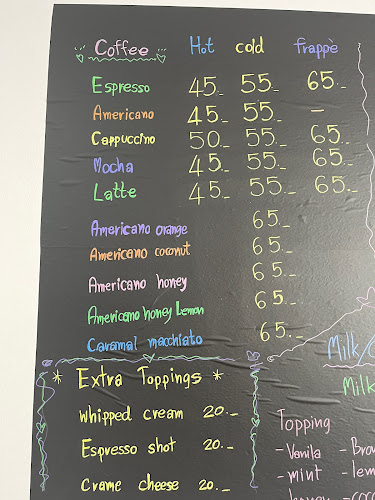 Coffee Hot cold frappè
Espresso 45.- 55.- 65.-
Americano 45.- 55.- -
Cappuccino 50.- 55.- 65.-
Mocha 45.- 55.- 65.-
Latte 45.- 55.- 65.-
Americano orange 65.-
Americano coconut 65.-
Americano honey 65.-
Americano honey Lemon 65.-
Caramal macchiato 65.-
* Extra Toppings *
Whipped cream 20.-
Espresso shot 20.-
Crame cheese 20.-
Milk/
Milk
Topping
-Vanila -Brow
-mint -lem